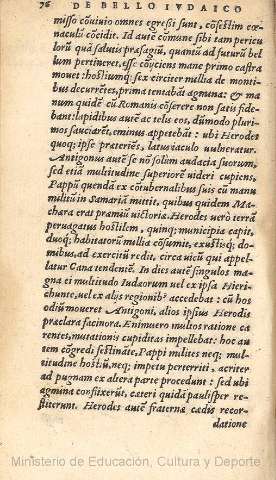 76 DE BELLO IVDAICO
misso cōviuio omnes egressi sunt, cōfestim cœ-
naculū cōcidit. Id autē cōmune sibi tam pericu
lorū quā salutis præsagiū, quantū ad futurū bel
lum pertineret, esse cōijciens mane primo castra
mouet: hostiumq; sex circiter millia de monti-
bus decurrētes, prima tentabāt agmina: & ma
num quidē cū Romanis cōserere non satis fide-
bant: lapidibus autē ac telis eos, dūmodo pluri-
mos sauciarēt, eminus appetebāt: vbi Herodes
quoq; ipse præteriēs, latus iaculo vulneratur.
Antigonus autē se nō solùm audacia suorum,
sed etiā multitudine superiorē videri cupiens,
Pappū quendā ex cōtubernalibus suis cū manu
militū in Samariā mittit, quibus quidem Ma-
chæra erat præmiū victoria. Herodes verò terrā
peruagatus hostilem, quinq; municipia capit,
duoq; habitatorū millia cōsumit, exustisq; do-
mibus, ad exercitū redit, circa vicū qui appel-
latur Cana tendentē. In dies autē singulos mag
na ei multitudo Iudæorum vel ex ipsa Hieri-
chunte, vel ex alijs regionibꝰ accedebat: cū hos
odiū moueret Antigoni, alios ipsius Herodis
præclara facinora. Enimuero multos ratione ca
rentes, mutationis cupiditas impellebat: hoc au
tem cōgredi festināte, Pappi milites neq; mul-
titudine hostiū, neq; impetu perterriti, acriter
ad pugnam ex altera parte procedunt: sed vbi
agmina conflixerūt, cæteri quidē paulisper re-
stiterunt. Herodes autē fraternæ cadis recor-
datione
Ministerio de Educación, Cultura y Deporte